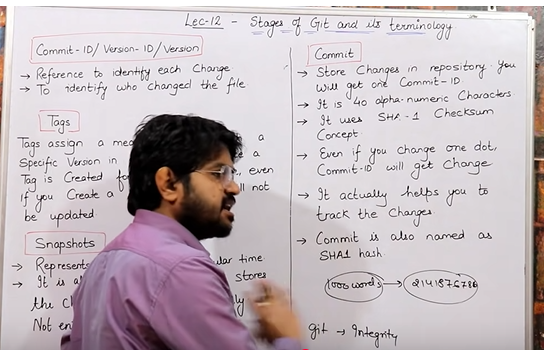 Lec-12 - Stages of Git and its terminology
Commit-ID/Version-ID/Version
→ Reference to identify each Change
→ To identify who changed the file
Tags
Tags assign a a
Specific Version in a
Tag is Created even
If you Create a not
be updated
Snapshots
→ Represents time
→ It is stores
the
Not
Commit
→ Store Changes in repository. You
will get one Commit-ID
→ It is 40 alpha-numeric Characters
→ It uses SHA-1 Checksum
Concept
→ Even if you change one dot,
Commit-ID will get Change
→ It actually helps you to
track the Changes
→ Commit is also named as
SHA1 hash.
1000 words →
git → Integrity